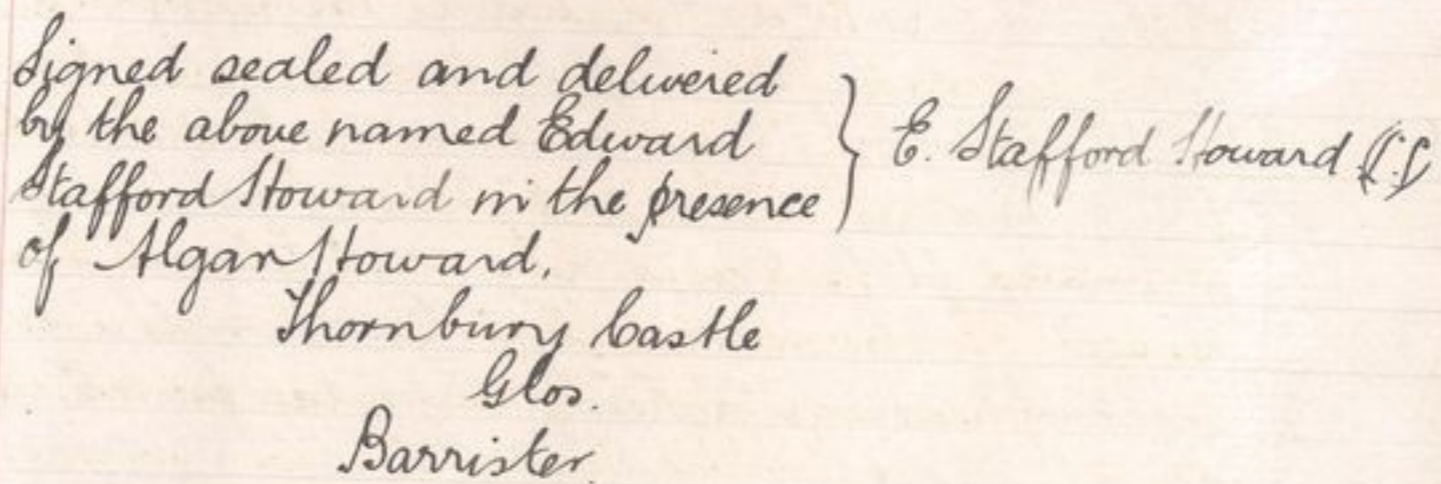 Signed sealed and delivered
by the above named Edward
Stafford Howard in the presence
of Algar Howard,
Thornbury Castle
Glos.
Barrister
E. Stafford Howard (L.S)